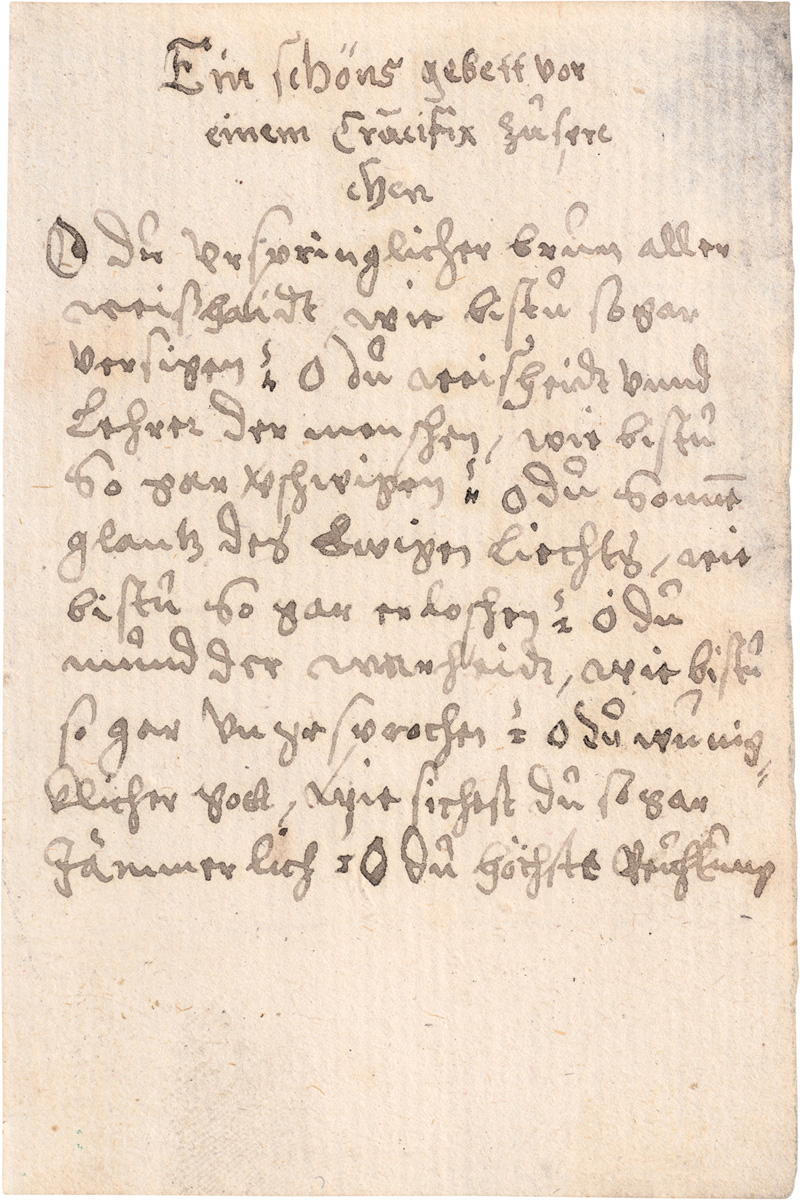 Ein schöns gebett vor
einem Crucifix zůspre
chen
O dů vrspringlicher brun aller
weishaidt wie bistů so gar
versigen : O dů weisheidt vnnd
Lehrer der menschen, wie bistů
So gar vschwigen : O dů Sonnē
glantz des Ewigen Liechts, wie
bistů So gar erloschen : O dů
můnd der warheidt, wie bistů
so gar Vngesprochen : O dů wůnig„
klicher gott, wie sichst dů so gar
Jämmerlich : O dů höchste